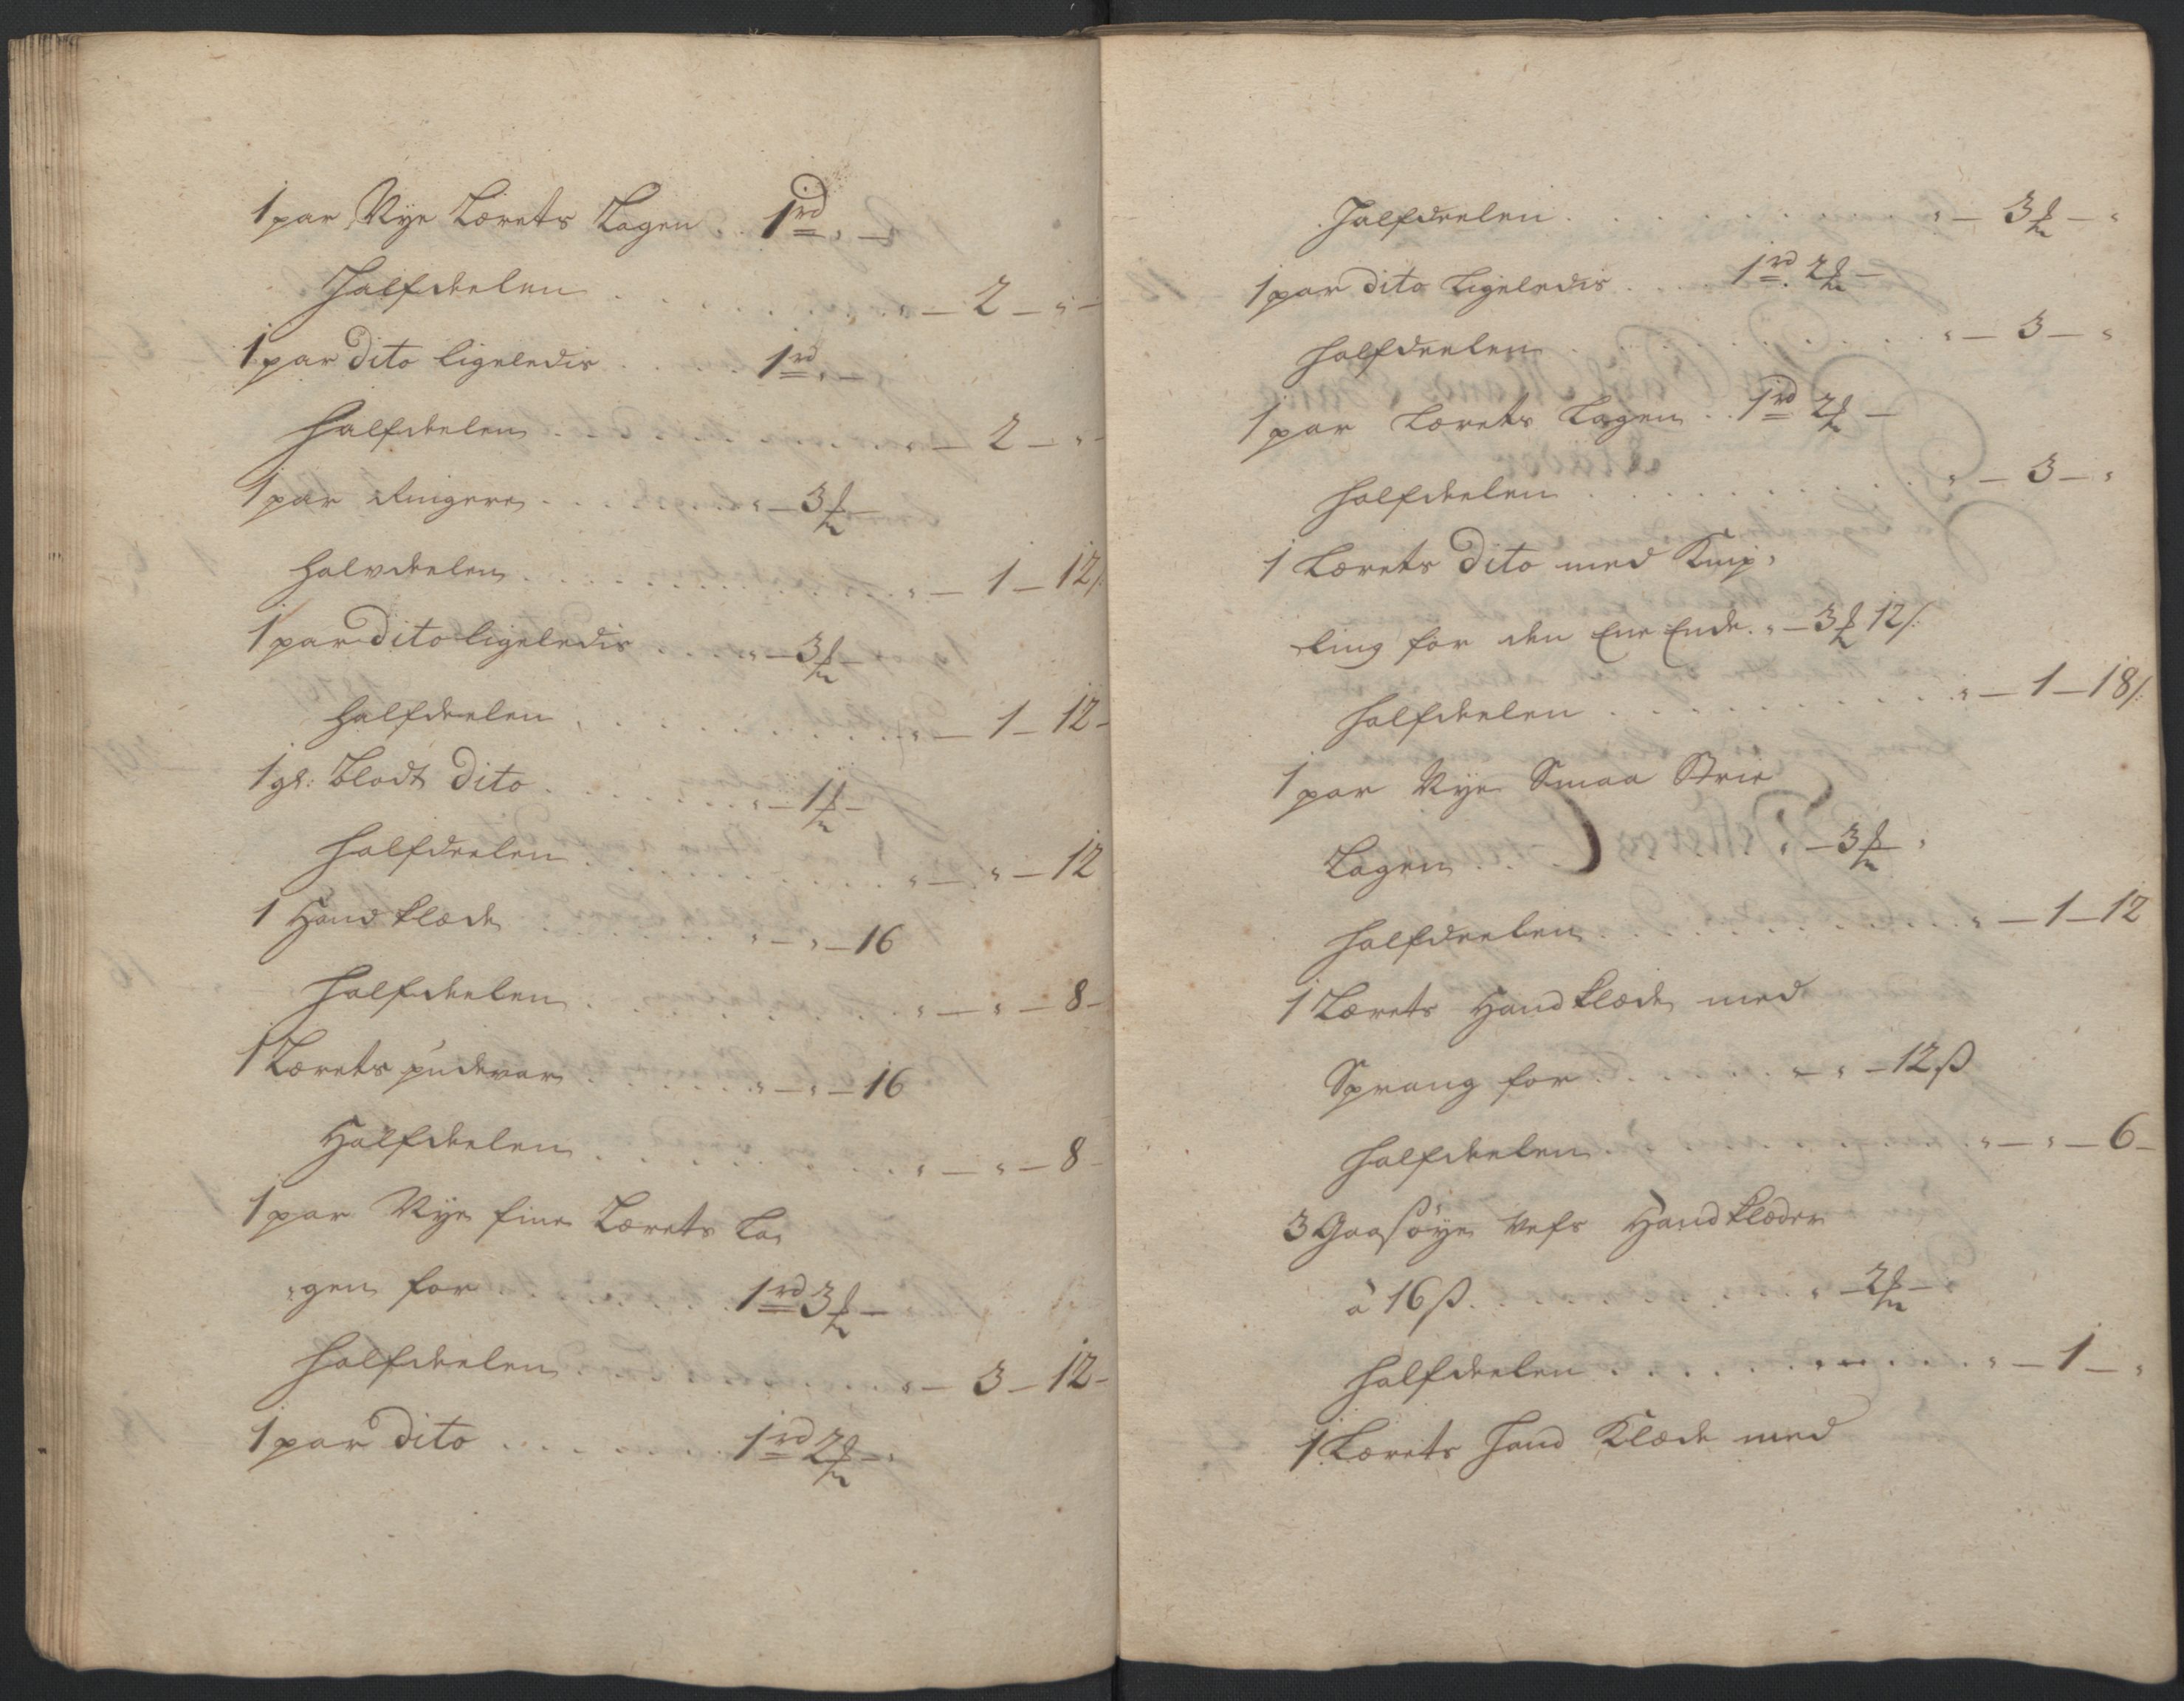 1 par Nye Lærets Lagen . . 1 rd „ —
Halfdeelen . . . . . . . . „ — 2 — „ —
1 par dito ligeledis . . . . . 1 rd „ —
Halfdeelen . . . . . . . . „ — 2 — „ -
1 par Ringere . . . . . „ — 3 ₰ —
halvdeelen . . . . . . . . „ — 1 — 12 /:
1 par dito ligeledis „ — 3 ₰ —
halfdeelen . . . . . . . . „ — 1 — 12 -
1 gl: Bladt dito . . . . . . „ — 1 ₰ —
Halfdeelen . . . . . . . . „ — „ — 12
1 Handklæde . . . . . . „ — „ — 16
Halfdeelen . . . . . . . . „ — „ — 8 -
1 Lærets pudevar . . . . . . „ — „ — 16
Halfdeelen . . . . . . . . „ — „ — 8 -
1 par Nye fine Lærets La„
„gen for . . . . . . 1 rd 3 ₰ —
Halfdeelen . . . . . . . . „ — 3 — 12 -
1 par dito . . . . . . . 1 rd 2 ₰ — „
Halfdeelen . . . . . . . . „ — 3 ₰ — „
1 par dito ligeledis . . . . 1 rd 2 ₰ —
Halfdeelen . . . . . . . . „ — 3 — „
1 par Lærets Lagen . . 1 rd 2 ₰ —
Halfdeelen . . . . . . . . „ — 3 — „
1 Lærets dito med Knip„
„ling for den Ene Ende . „ — 3 ₰ 12 /:
Halfdeelen . . . . . . . . „ — 1 — 18 /:
1 par Nye Smaa Strie
Lagen . . . „ — 3 ₰ — „
Halfdeelen . . . . . . . . „ — 1 — 12
1 Lærets Handklæde med
Sprang for . . . . . . „ — „ — 12 ß
Halfdeelen . . . . . . . . „ — „ — 6 —
3 Gaasøye Vefs Handklæder
à 16 ß . . . . . . „ — 2 ₰ —
Halfdeelen . . . . . . . . „ — 1 — „
1 Lærets Hand Klæde med